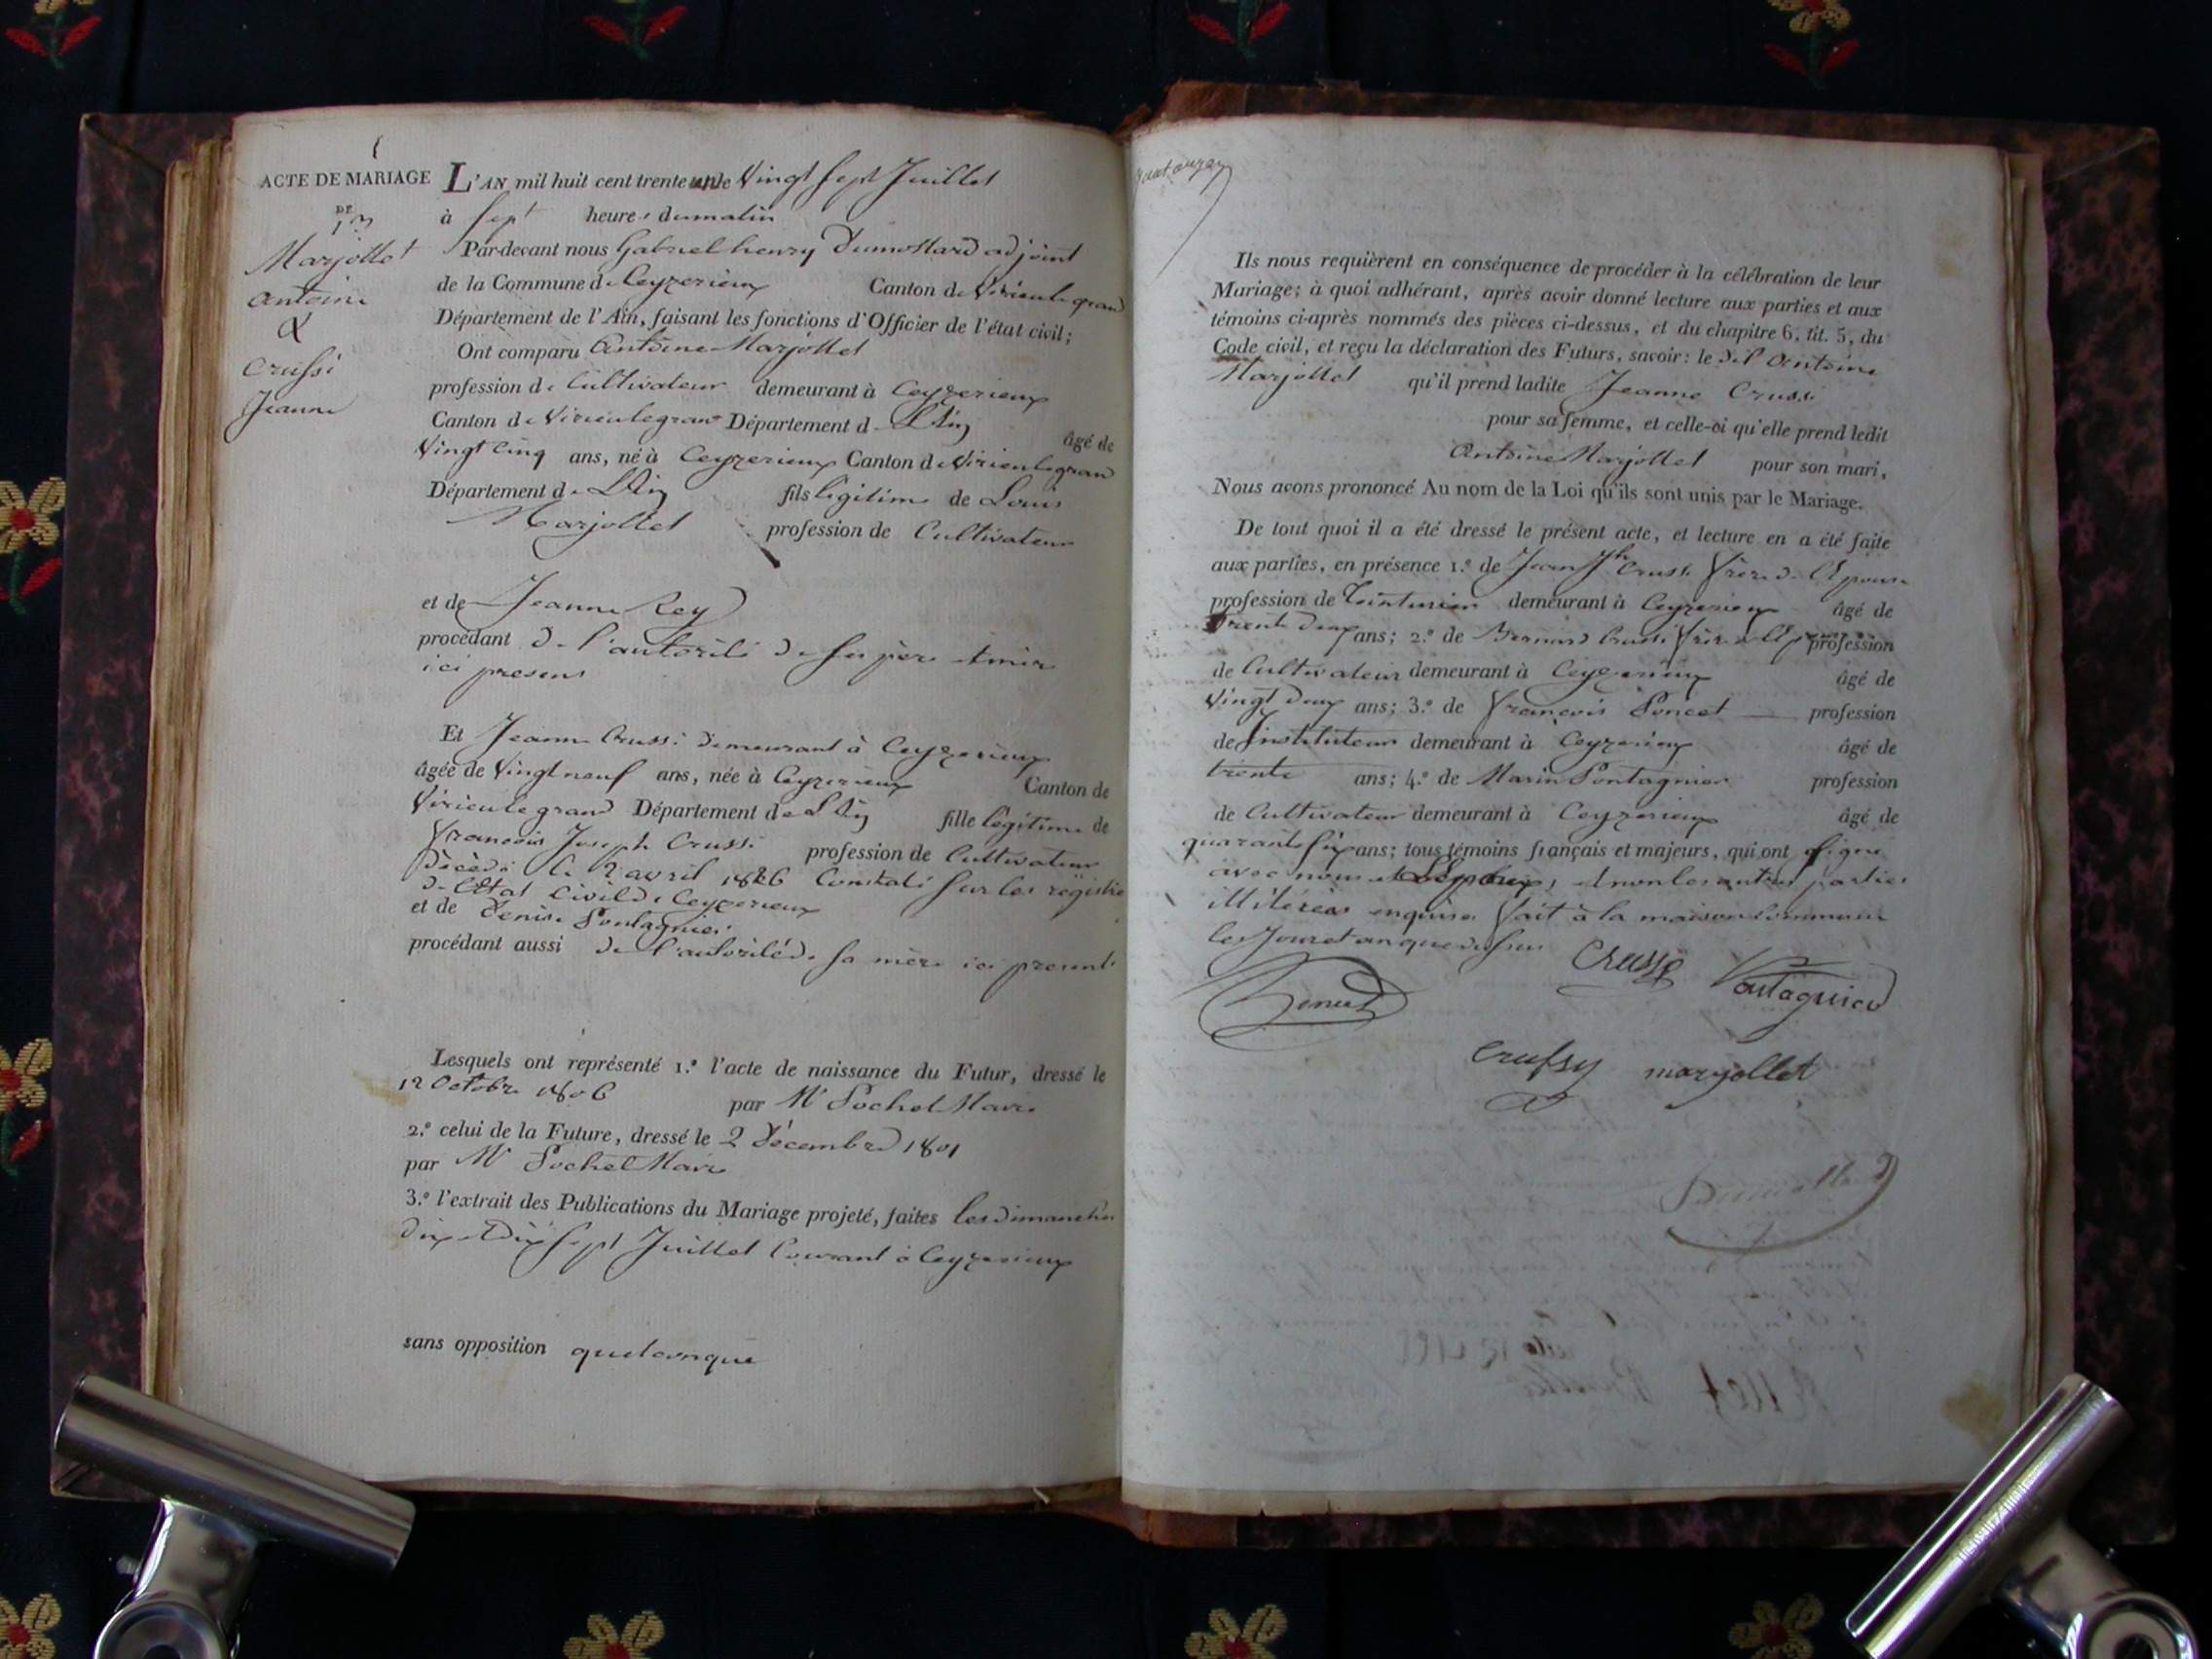 ACTE DE MARIAGE
DE
Marjollet
Antoine
&
Crussi
Jeanne
L'AN mil huit cent trente un le Vingt sept Juillet
à sept heures du matin
Par-devant nous Gabriel henry Dumollard adjoint
de la Commune de Ceyzerieux Canton de Virieulegrand
Département de l'Ain, faisant les fonctions d'Officier de l'état civil;
Ont comparu Antoine Marjollet
profession de Cultivateur demeurant à Ceyzerieux
Canton de Virieulegrand Département de L'Ain âgé de
Vingt cinq ans, né à Ceyzerieux Canton de Virieulegrand
Département de L'Ain fils légitime de Louis
Marjollet profession de Cultivateur
et de Jeanne Rey
procédant de l'autorité de ses père et mère
ici presens
Et Jeanne Crussi demeurant à Ceyzerieux
âgée de Vingt neuf ans, née à Ceyzerieux Canton de
Virieulegrand Département de L'Ain fille légitime de
François Joseph Crussi profession de Cultivateur
Décédé le 2 avril 1826 Constaté sur les registre
de l'Etat Civil de Ceyzerieux
et de Denise Pontagnier
procédant aussi de l'autorité de sa mère ici presente
Lesquels ont représenté 1.º l'acte de naissance du Futur, dressé le
12 Octobre 1806 par Mr Pochet Maire
2.º celui de la Future, dressé le 2 Décembre 1801
par Mr Pochet Maire
3.º l'extrait des Publications du Mariage projeté, faites les dimanches
dix et Dix sept Juillet Courant à Ceyzerieux
sans opposition quelconque
Ils nous requièrent en conséquence de procéder à la célébration de leur
Mariage; à quoi adhérant, après avoir donné lecture aux parties et aux
témoins ci-après nommés des pièces ci-dessus, et du chapitre 6, tit. 5, du
Code civil, et reçu la déclaration des Futurs, savoir: le dit Antoine
Marjollet qu'il prend ladite Jeanne Crussi
pour sa femme, et celle-ci qu'elle prend ledit
Antoine Marjollet pour son mari,
Nous avons prononcé Au nom de la Loi qu'ils sont unis par le Mariage.
De tout quoi il a été dressé le présent acte, et lecture en a été faite
aux parties, en présence 1.º de Jean Jh Crussi frère de l'Epouse
profession de Teinturier demeurant à Ceyzerieux âgé de
Trente deux ans; 2.º de Bernard Crussi frère de l'Epouse profession
de Cultivateur demeurant à Ceyzerieux âgé de
Vingt deux ans; 3.º de François Poncet profession
de Instituteur demeurant à Ceyzerieux âgé de
trente ans; 4.º de Marin Pontagnier profession
de Cultivateur demeurant à Ceyzerieux âgé de
quarante six ans; tous témoins français et majeurs, qui ont signé
avec nous et non les autres parties
illitérées enquises fait à la maison Commune
les Jour et an que dessus
Crussy Pontagnier
Poncet
Crussy marjollet
Dumollard